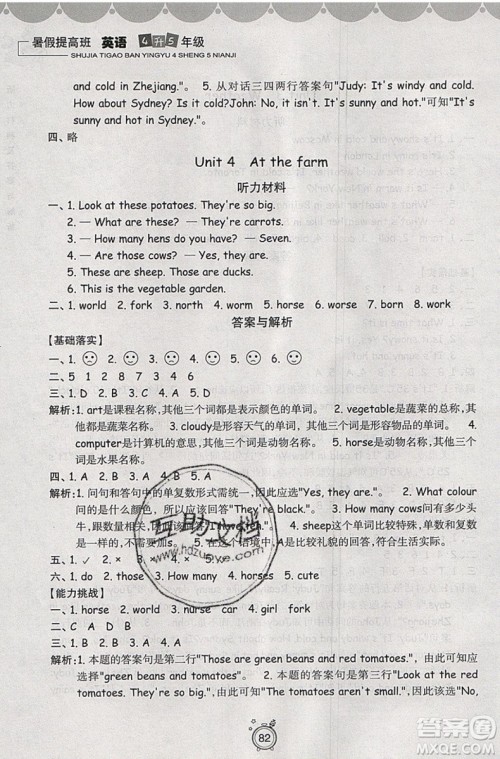 暑假提高班 英语 4升5年级
SHUJIA TIGAO BAN YINGYU 4 SHENG 5 NIANJI
and cold in Zhejiang." 5. 从对话三四两行答案句"Judy: It's windy and cold.
How about Sydney? Is it cold?John: No, it isn't. It's sunny and hot."可知"It's
sunny and hot in Sydney."
四、略
Unit 4 At the farm
听力材料
一、1. Look at these potatoes. They're so big.
2. — What are these? — They're carrots.
3. — How many hens do you have? — Seven.
4. — Are those cows? — Yes, they are.
5. Those are sheep. Those are ducks.
6. This is the vegetable garden.
二、1. world 2. fork 3. warm 4. horse 5. worse 6. born 7. work
答案与解析
【基础落实】
一、1. ☹ 2. ☹ 3. ☺ 4. ☺ 5. ☹ 6. ☺
二、5 1 2 8 7
三、1. D 2. A 3. C 4. A 5. D
解析:1. art是课程名称,其他三个词都表示颜色的单词。 2. vegetable是蔬菜的总称,其
他都是蔬菜名称。 3. cloudy是形容天气的单词,其他三个词是形容物品的单词。 4.
computer是计算机的意思,其他三个词是动物名称。 5. horse是动物名称,其他三个词
是水果名称。
四、1. A 2. D
解析:1. 问句和答句中的单复数形式需统一,因此应选"Yes, they are." 2. What colour
问的是什么颜色,所以应选 They're black." 3. How many cows问有多少头牛,
跟数量有关,因此应该回答
都是s. 4. sheep这个单词比较特殊,单数和复数的
形式都是一样的。 5. 在这个情境中,应选A的回答,符合生活实际。
五、1. ✓ 2. × 4. × 5.
六、1. do 2. those 3. How many 4. horses 5. cold
【能力挑战】
一、1. horse 2. world 3. nurse car 4. girl fork
二、C A D B
三、1. B 2. A 3. B 4. A 5. B
解析:1. 本题的答案句是第二行"Those are green beans and red tomatoes.",所以应
选择"Green beans and red tomatoes." 2. 本题的答案句是第三行"The tomatoes
are big.",所以对于问句"The tomatoes aren't small.",因此应选择"No,
互助文档
www.hdzuoye.com
82
答案圈
MXQE.COM